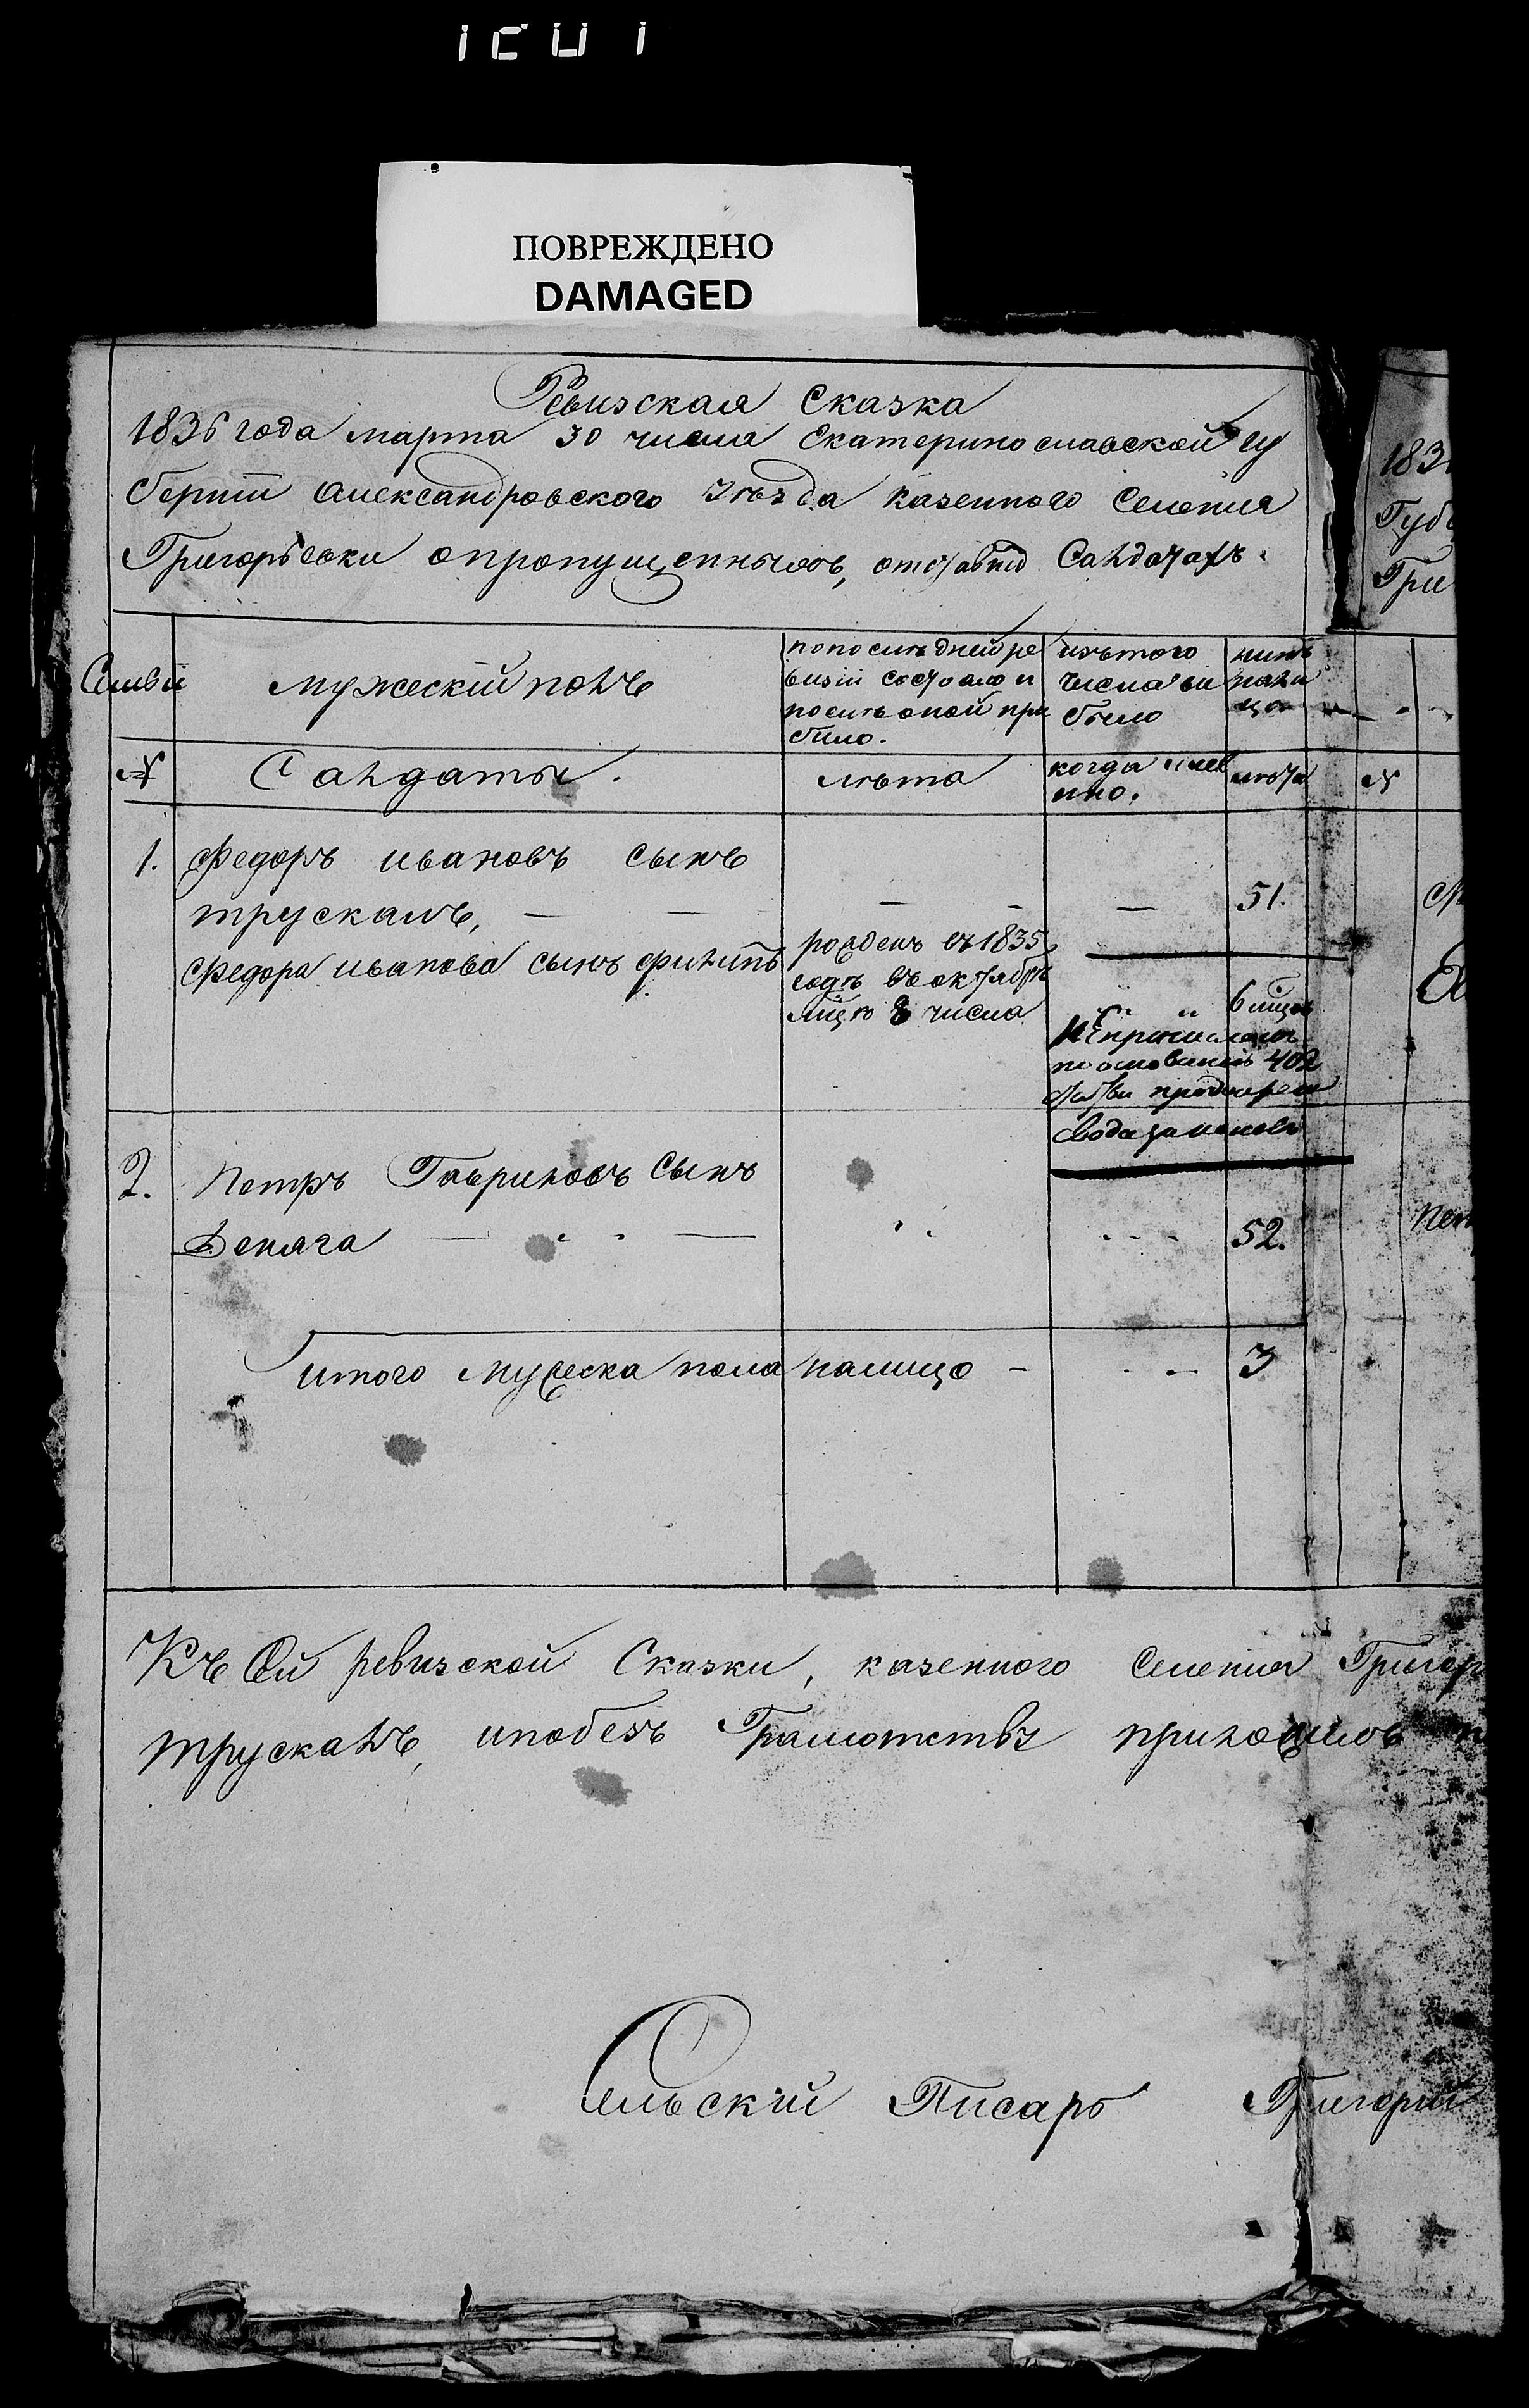 ПОВРЕЖДЕНО
DAMAGED
Ревизская Сказка
1836 года марта 30 числа Екатеринославской гу
берніи Александровского уѣзда казенного Селенія
Григорьевки о пропущенныхъ, отставныхъ Салдатахъ.
Семьи
мужескій полъ
по последней ре
визіи состояло и
после оной при
было.
изъ того
числа вы
было
нынѣ
нали
цо
№
Салдаты.
лѣта
когда имен
но.
лѣта
№
1. Федоръ ивановъ сынъ
трускалъ, — — — — — 51.
Федора иванова сынъ филипъ
рожденъ въ 1835
годѣ въ октябрѣ
мцѣ 8 числа
6 мцов
Не причисленъ
по основанію 402
статьи
свода законовъ
2. Петръ Гавриловъ сынъ
Деняга — — 52.
итого мужеска пола налицо — — 3
Къ сей ревизской Сказки, казенного Селения Григор
трускалъ, а по безъ Грамотству
Сельскій Писарь Григорий
183
Губ
Гри